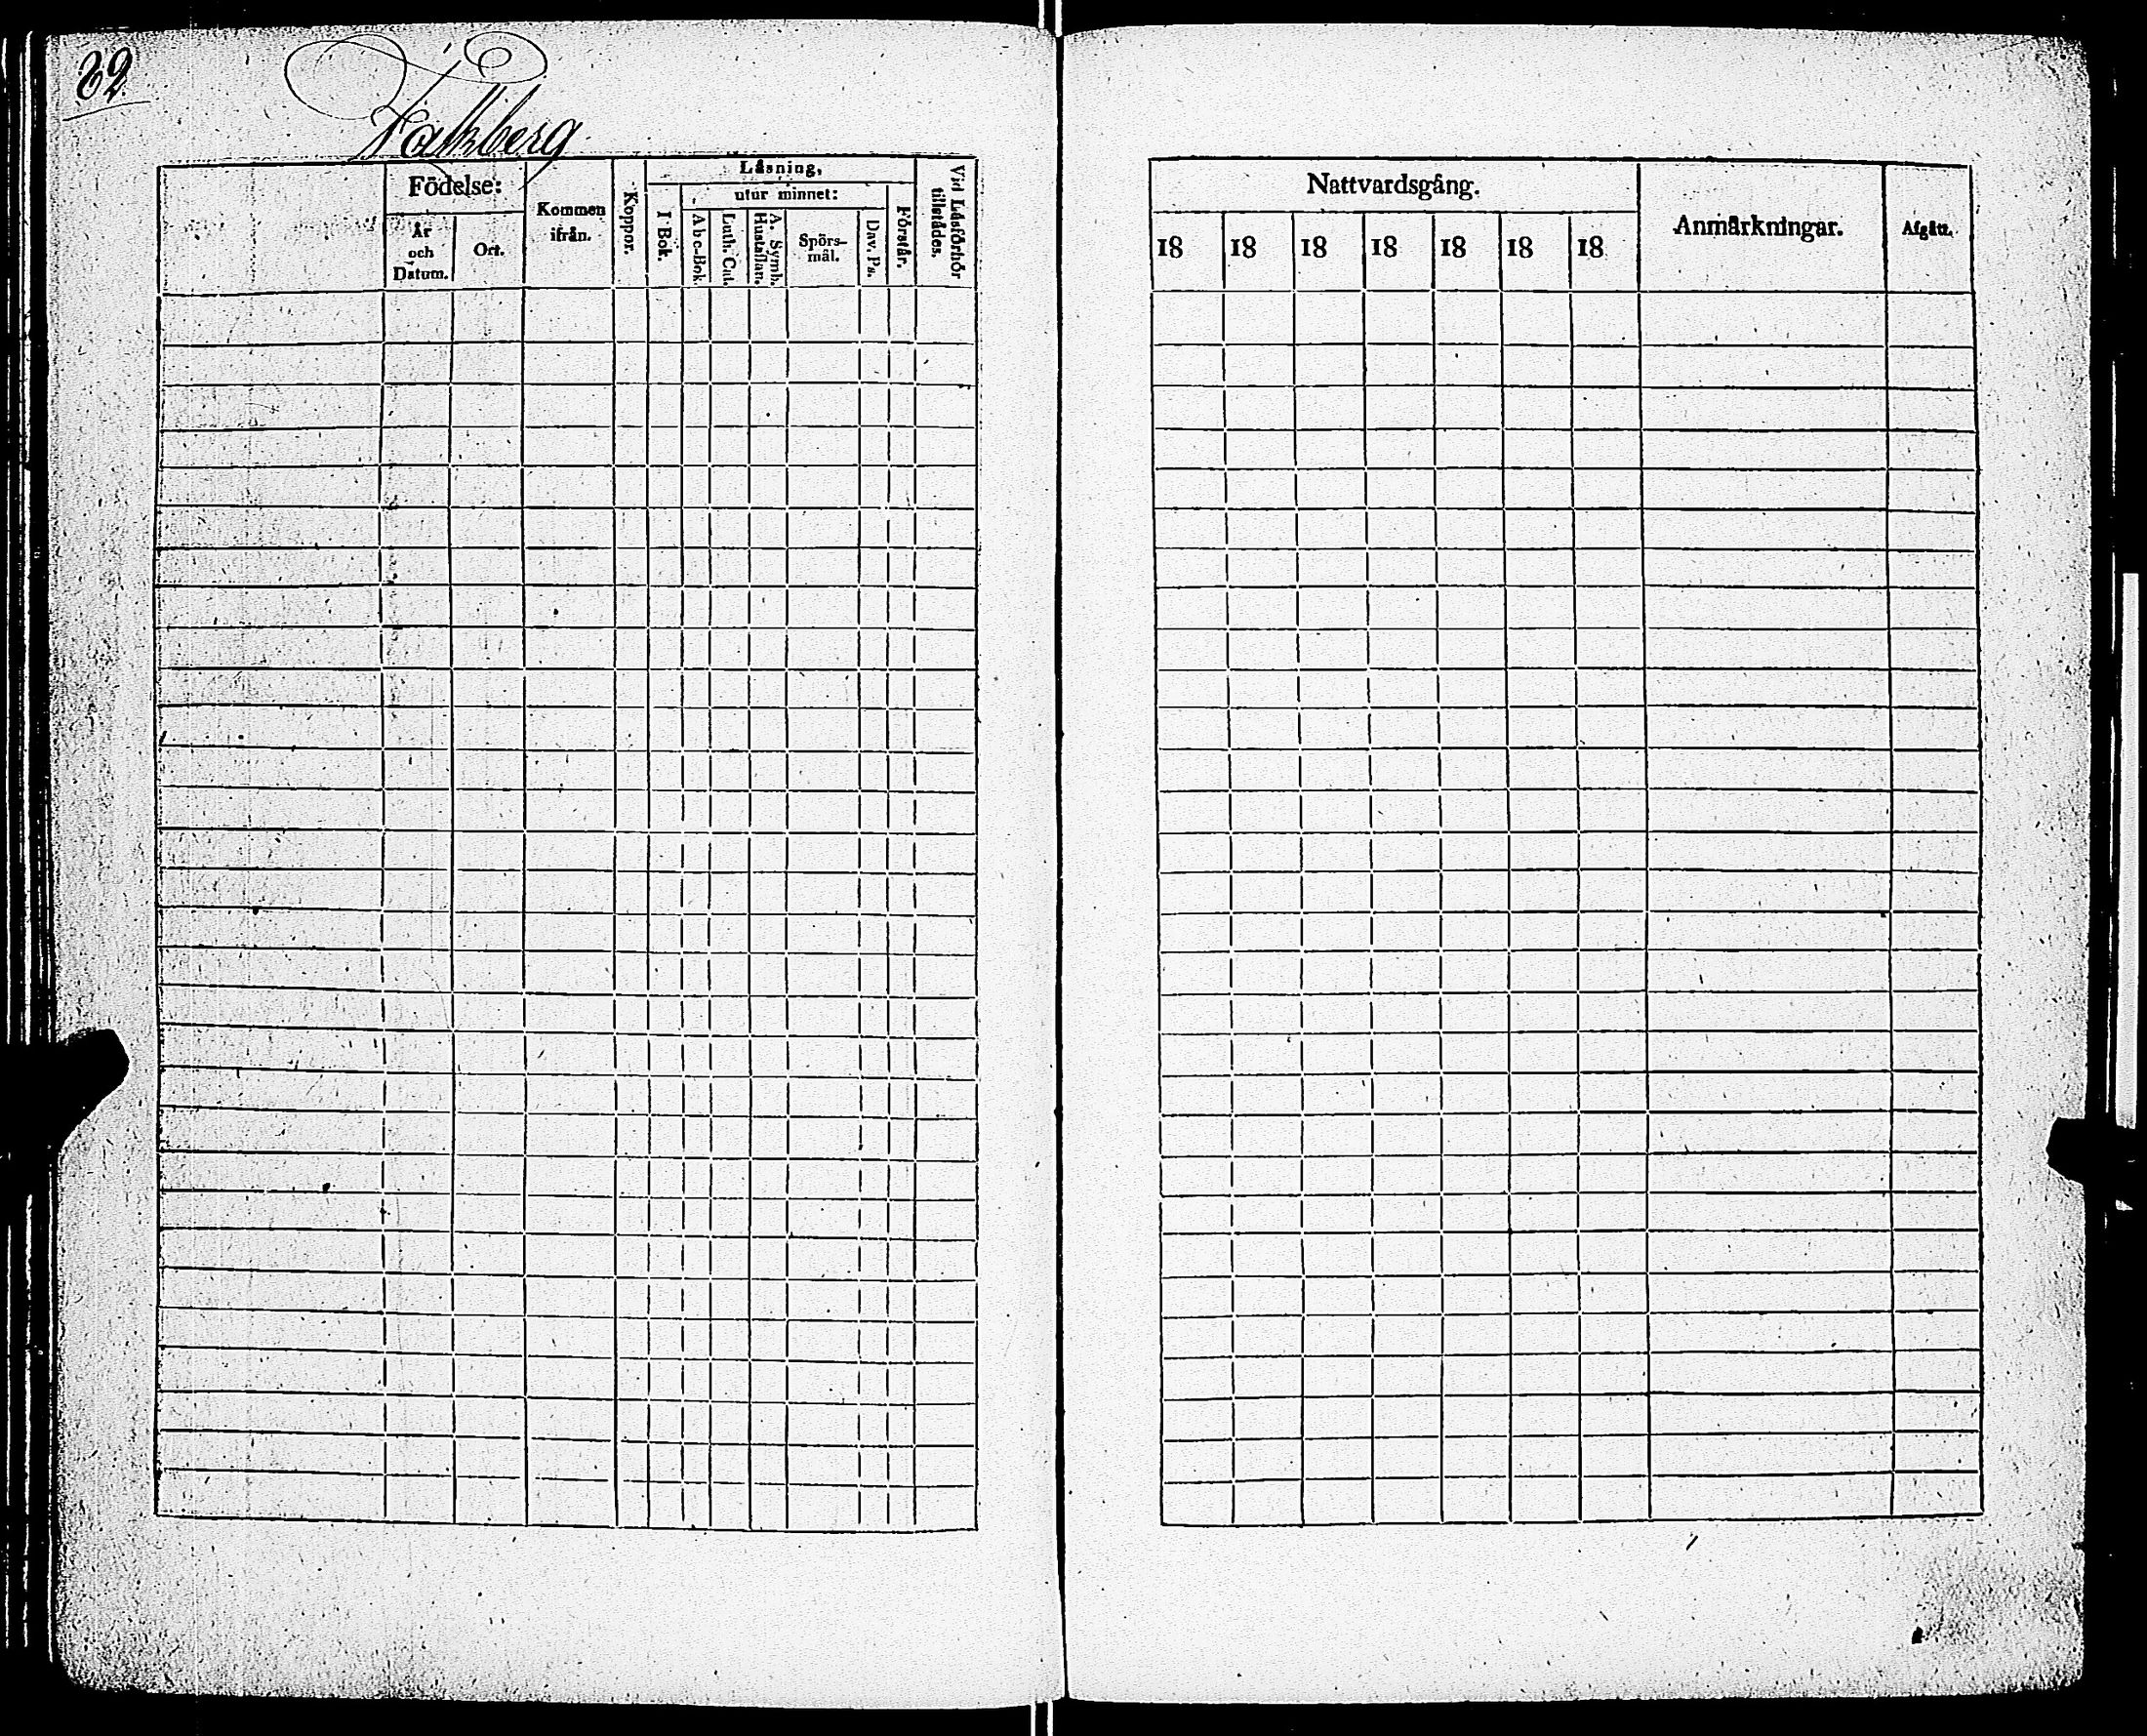 82
Falkberg
Födelse:
År och Datum.
Ort.
Kommen ifrån.
Koppor.
Läsning,
utur minnet:
I Bok.
Abc-Bok.
Luth. Cat.
A. Symb. Hustaflan.
Spörs-mål.
Dav. Ps.
Förstår.
Vid Läsförhör tillstädes.
Nattvardsgång.
18 18 18 18 18 18 18
Anmärkningar.
Afgått.